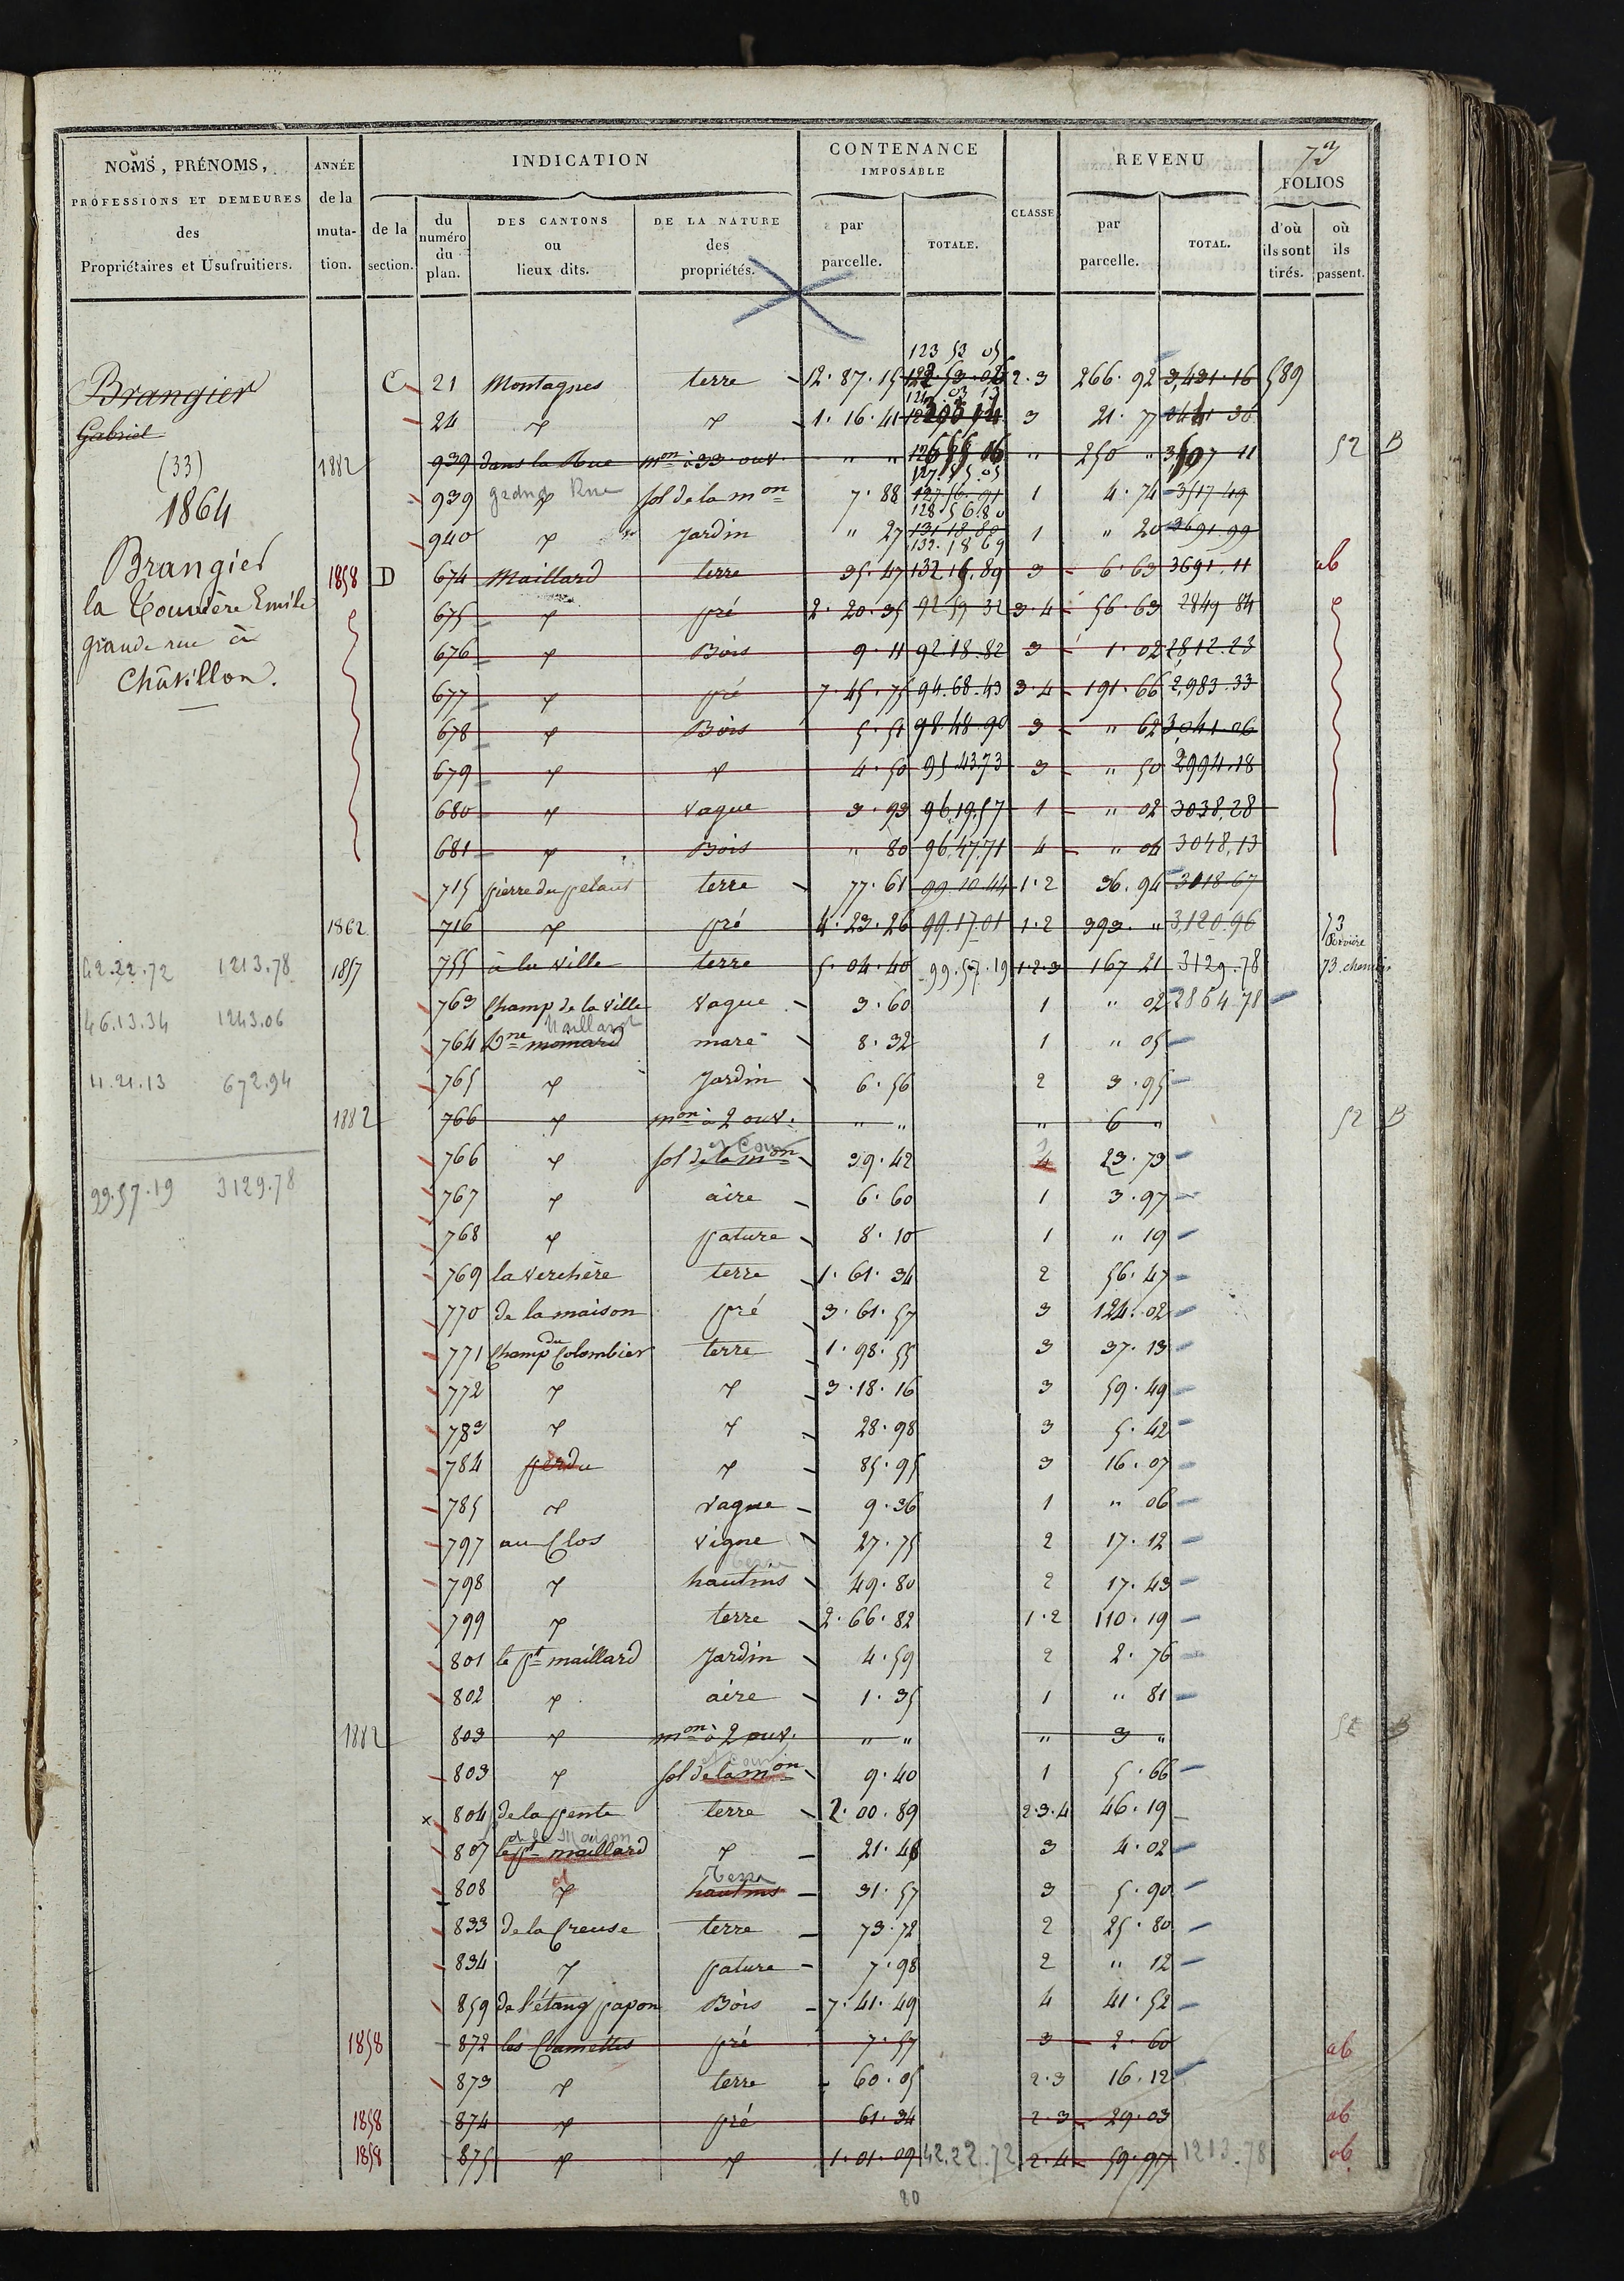 NOMS, PRÉNOMS,
PROFESSIONS ET DEMEURES
des
Propriétaires et Usufruitiers.
ANNÉE
de la
muta-
tion.
INDICATION
de la
section.
du
numéro
du
plan.
DES CANTONS
ou
lieux dits.
DE LA NATURE
des
propriétés.
CONTENANCE
IMPOSABLE
par
parcelle.
TOTALE.
CLASSE
REVENU
par
parcelle.
TOTAL.
73
FOLIOS
d'où
ils sont
tirés.
où
ils
passent.
Brangier
Gabriel
(33)
1864
Brangier
la Tourvière Emile
grande rue à
Châtillon.
42.22.72 1213.78
46.13.34 1243.06
11.21.13 672.94
99.57.19 3129.78
123 53 05
C 21 Montagnes terre 12.87.15 2.3 266.92 3,431.16 589
24 " " 1.16.41 3 21.77
1882 939 dans la Rue mon à 33 ouv. " " " 250 " 52 B
127.55.05
939 grande Rue sol de la mon 7.88 127.56.01 1 4.74 3517.49
128.56.80
940 " Jardin " 27 131.18.80 1 " 20 3691.99
132.18.69
1858 D 674 Maillard terre 35.47 132.16.89 3 6.63 3691.11 ab
675 " pré 2.20.35 92.59.32 3.4 56.63 2849.84
676 " Bois 9.11 92.18.82 3 1.02 2812.23
677 " pré 7.45.75 94.68.43 3.4 191.66 2,983.33
678 " Bois 5.51 98.48.90 3 " 62 3,041.06
679 " " 4.50 95.43.73 3 " 50 2994.18
680 " vague 3.93 96.19.57 1 " 02 3038.28
681 " Bois " 80 96.47.71 4 " 04 3048.13
715 pierre du pelaut terre 77.61 99.10.44 1.2 36.94 3018.67
1862 716 " pré 4.23.26 99.17.01 1.2 393. " 3,120.96 73
1857 755 à la ville terre 5.04.40 99.57.19 1.2.3 167 21 3129.78 73. chemins
763 Champ de la ville vague 3.60 1 " 02 2864.78
Maillard
764 Dne momard mare 8.32 1 " 05
765 " Jardin 6.56 2 3.95
1882 766 " mon à 2 ouv. " " " 6 " 52 B
et Cour
766 " sol de la mon 39.42 4 23.73
767 " aire 6.60 1 3.97
768 " pature 8.10 1 " 19
769 la verchère terre 1.61.34 2 56.47
770 de la maison pré 3.61.57 3 124.02
771 Champ du Colombier terre 1.98.55 3 37.13
772 " " 3.18.16 3 59.49
783 " " 28.98 3 5.42
784 perdu " 85.95 3 16.07
785 " vague 9.36 1 " 06
797 au Clos vigne 27.75 2 17.12
Terre
798 " hautins 49.80 2 17.43
799 " terre 2.66.82 1.2 110.19
801 le pt maillard Jardin 4.59 2 2.76
802 " aire 1.35 1 " 81
1882 803 " mon à 2 ouv. " " " 3 " 52 B
et cour
803 " sol de la mon 9.40 1 5.66
x 804 de la pente terre 2.00.89 2.3.4 46.19
de la Maison
807 le pt maillard " 21.48 3 4.02
Terre
808 " hautins 31.57 3 5.90
833 de la Creuse terre 73.72 2 25.80
834 " pature 7.98 2 " 12
859 de l'étang papon Bois 7.41.49 4 41.52
1858 872 les Clamettes pré 7.57 3 2.60 ab
873 " terre 60.05 2.3 16.12
1858 874 " pré 61.34 2.3 29.03 ab
1858 875 " " 1.01.09 42.22.72 2.4 59.97 1213.78 ab
80